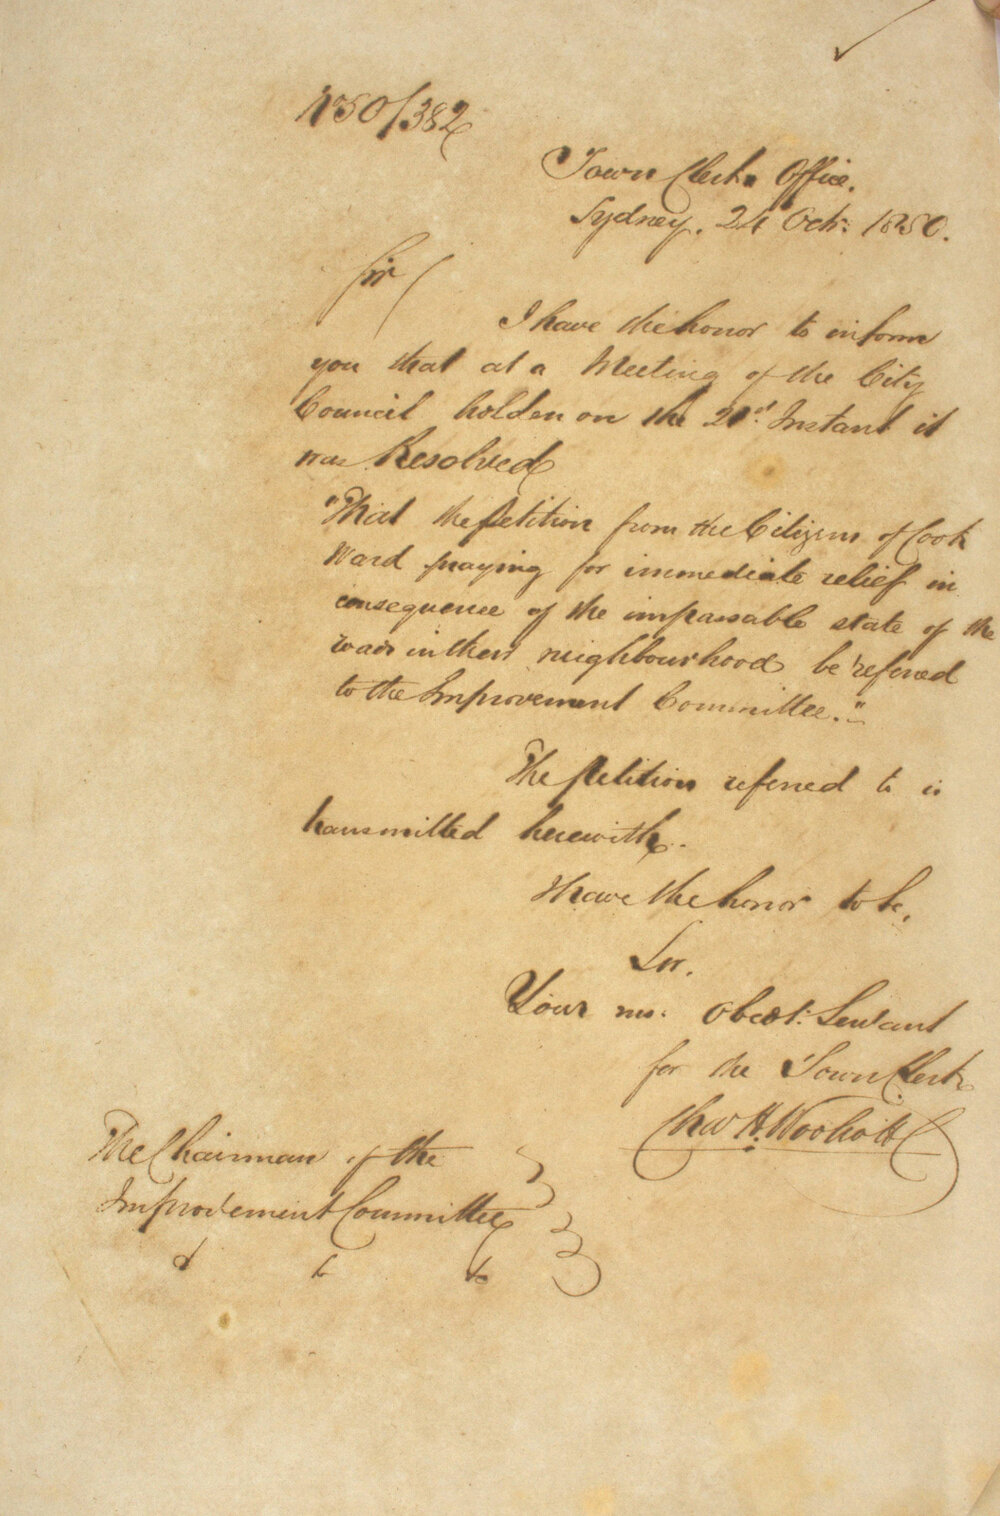 N° 50/382
Town Clerks Office.
Sydney. 24 Octr: 1850.
Sir
I have the honor to inform
you that at a Meeting of the City
Council holden on the 21st. Instant it
was Resolved
"That the Petition from the Citizens of Cook
Ward praying for immediate relief in
consequence of the impassable state of the
roads in their neighbourhood be referred
to the Improvement Committee."
The Petition referred to is
transmitted herewith.
I have the honor to be,
Sir.
Your mo: Obedt: Servant
for the Town Clerk
Chas H. Woolcott
The Chairman of the
Improvement Committee